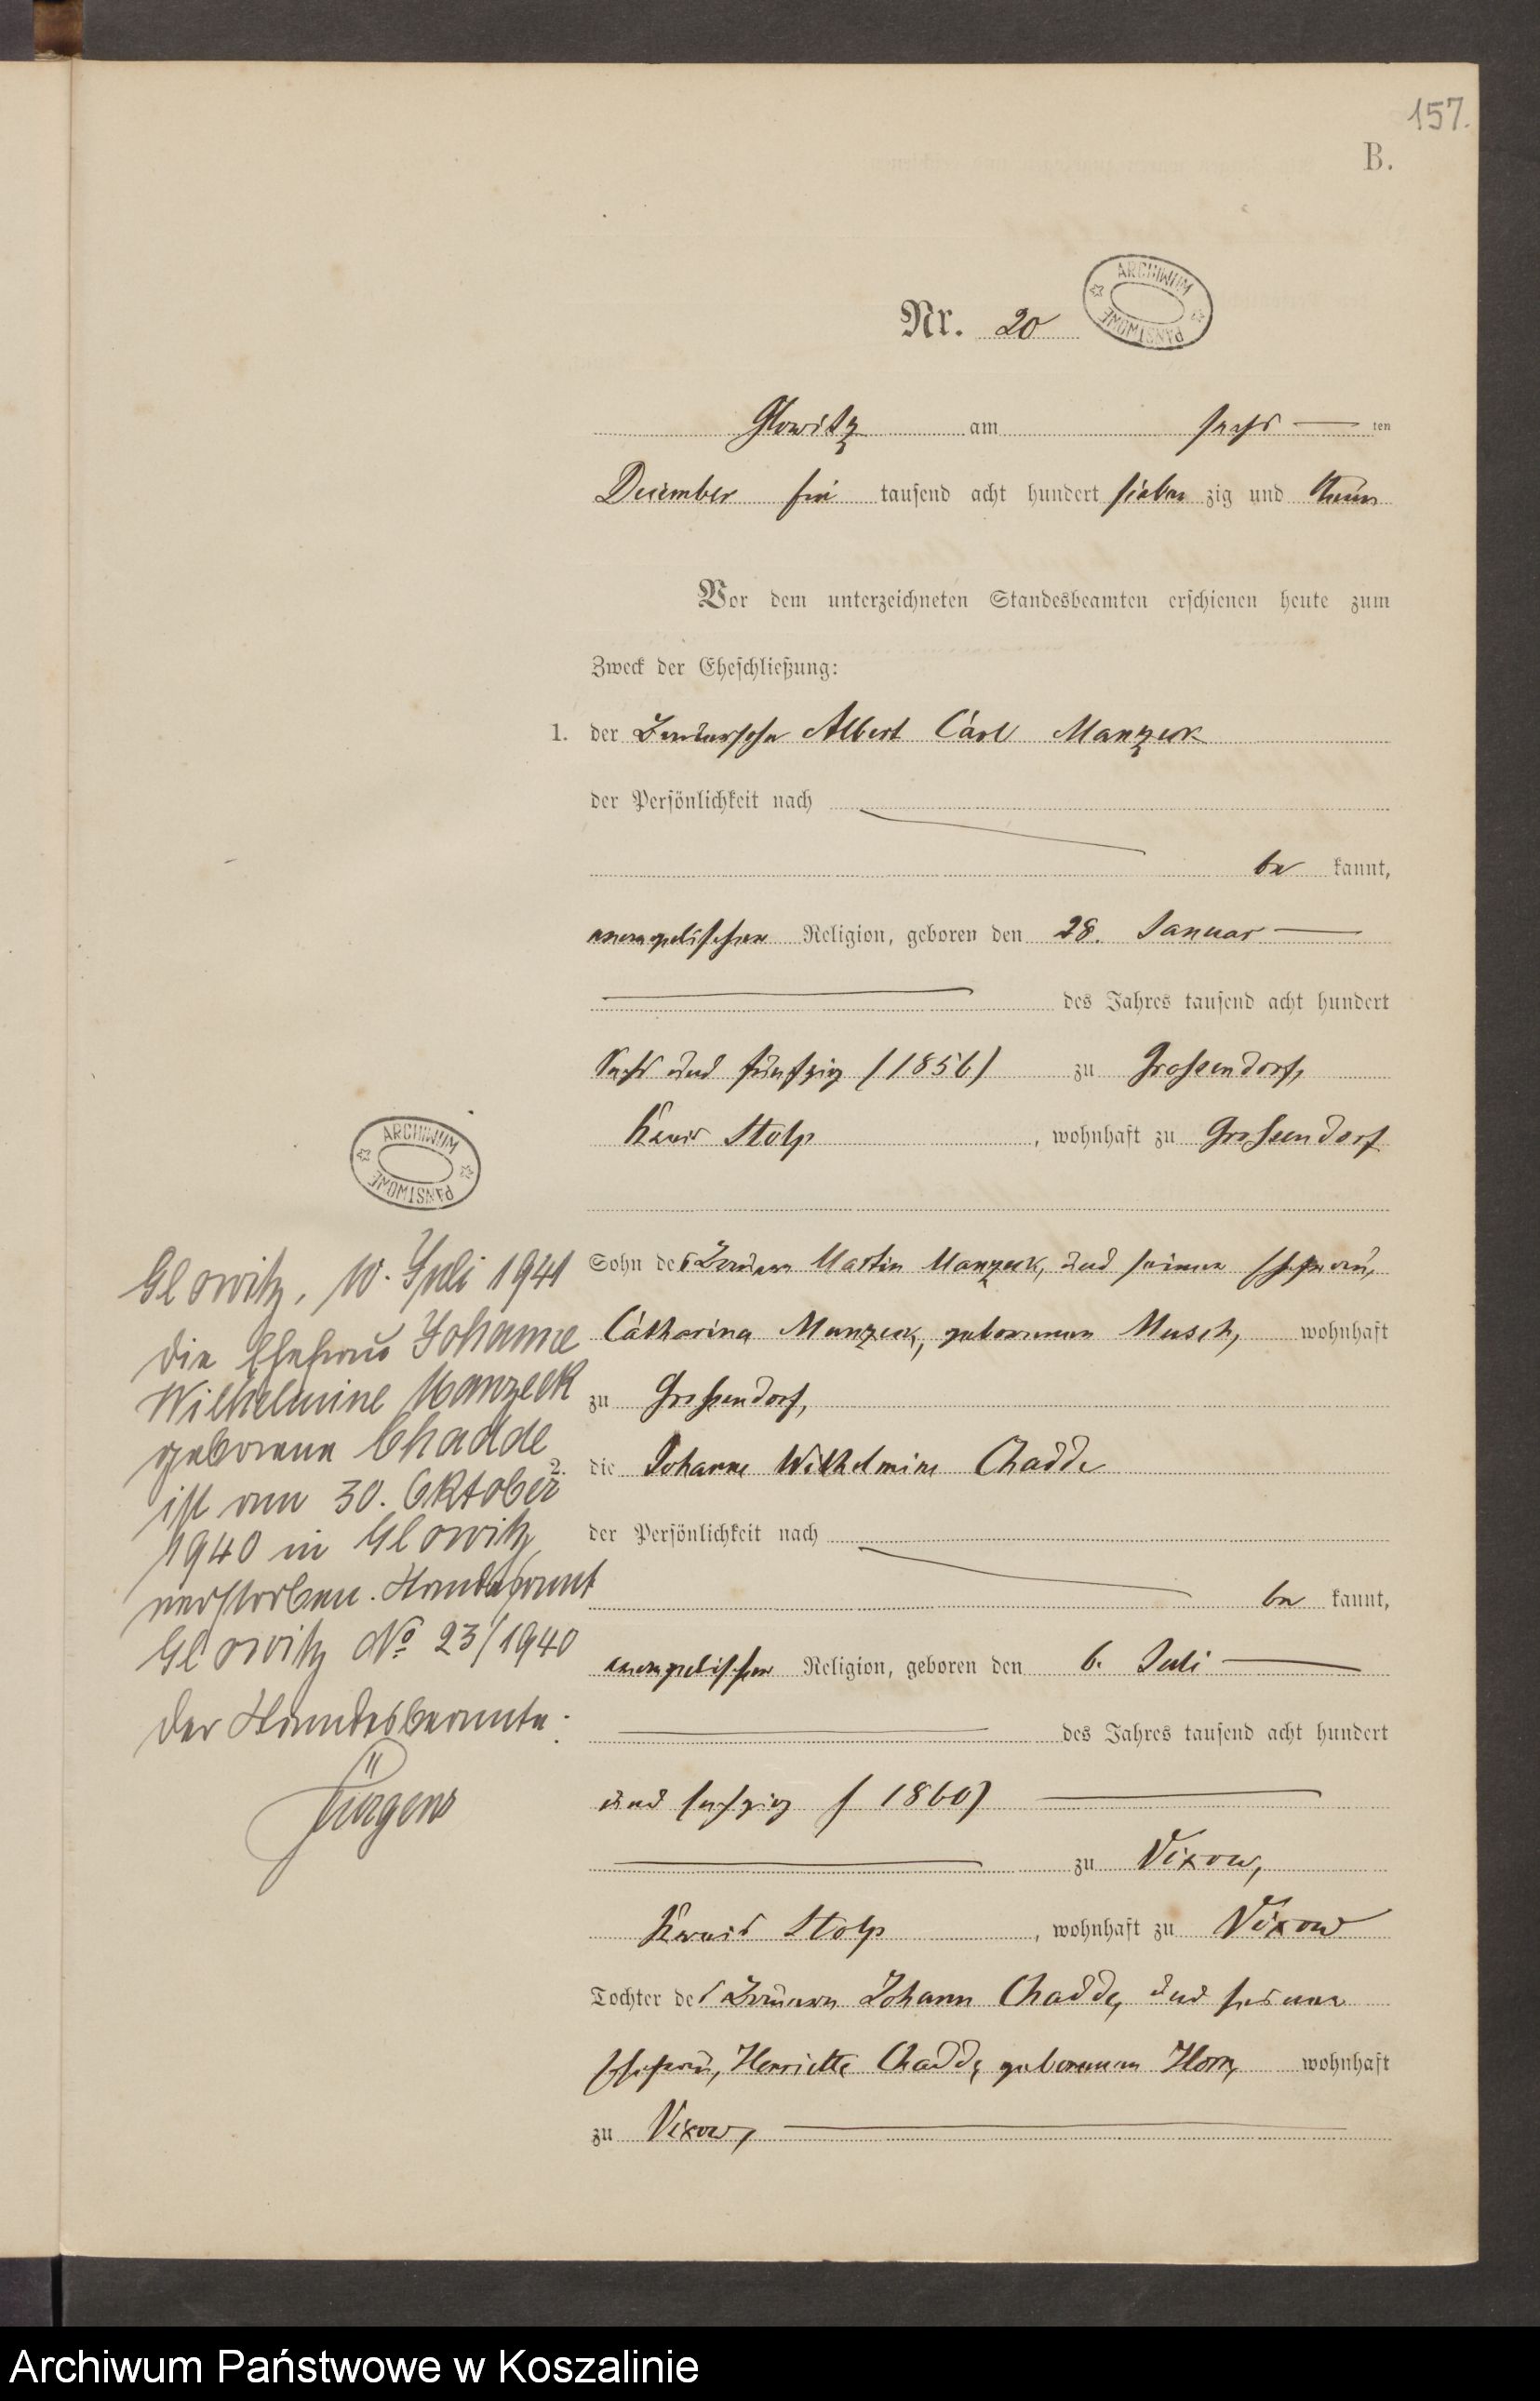 157.
B.
Nr. 20
ARCHIWUM PAŃSTWOWE
Glowitz am sechs — ten
December ein tausend acht hundert sieben zig und Neun
Vor dem unterzeichneten Standesbeamten erschienen heute zum
Zweck der Eheschließung:
1. der Albert Carl Manzeck
der Persönlichkeit nach
be kannt,
evangelischer Religion, geboren den 28. Januar —
— des Jahres tausend acht hundert
Sechs und fünfzig (1856) zu Großendorf,
Kreis Stolp , wohnhaft zu Großendorf
Sohn des Martin Manzeck, und seiner Ehefrau,
Catharina Manzeck, geborenen Musch, wohnhaft
zu Großendorf,
2. die Johanne Wilhelmine Chadde
der Persönlichkeit nach
be kannt,
evangelischer Religion, geboren den 6. Juli —
— des Jahres tausend acht hundert
und sechzig (1860) —
— zu Vixow,
Kreis Stolp , wohnhaft zu Vixow
Tochter des Johann Chadde, und seiner
Ehefrau, Henriette Chadde, geborenen Horn, wohnhaft
zu Vixow, —
ARCHIWUM PAŃSTWOWE
Glowitz, 10. Juli 1941
Die Ehefrau Johanne
Wilhelmine Manzeck
geborene Chadde
ist am 30. Oktober
1940 in Glowitz
verstorben. Standesamt
Glowitz No 23/1940
Der Standesbeamte:
Jürgens
Archiwum Państwowe w Koszalinie